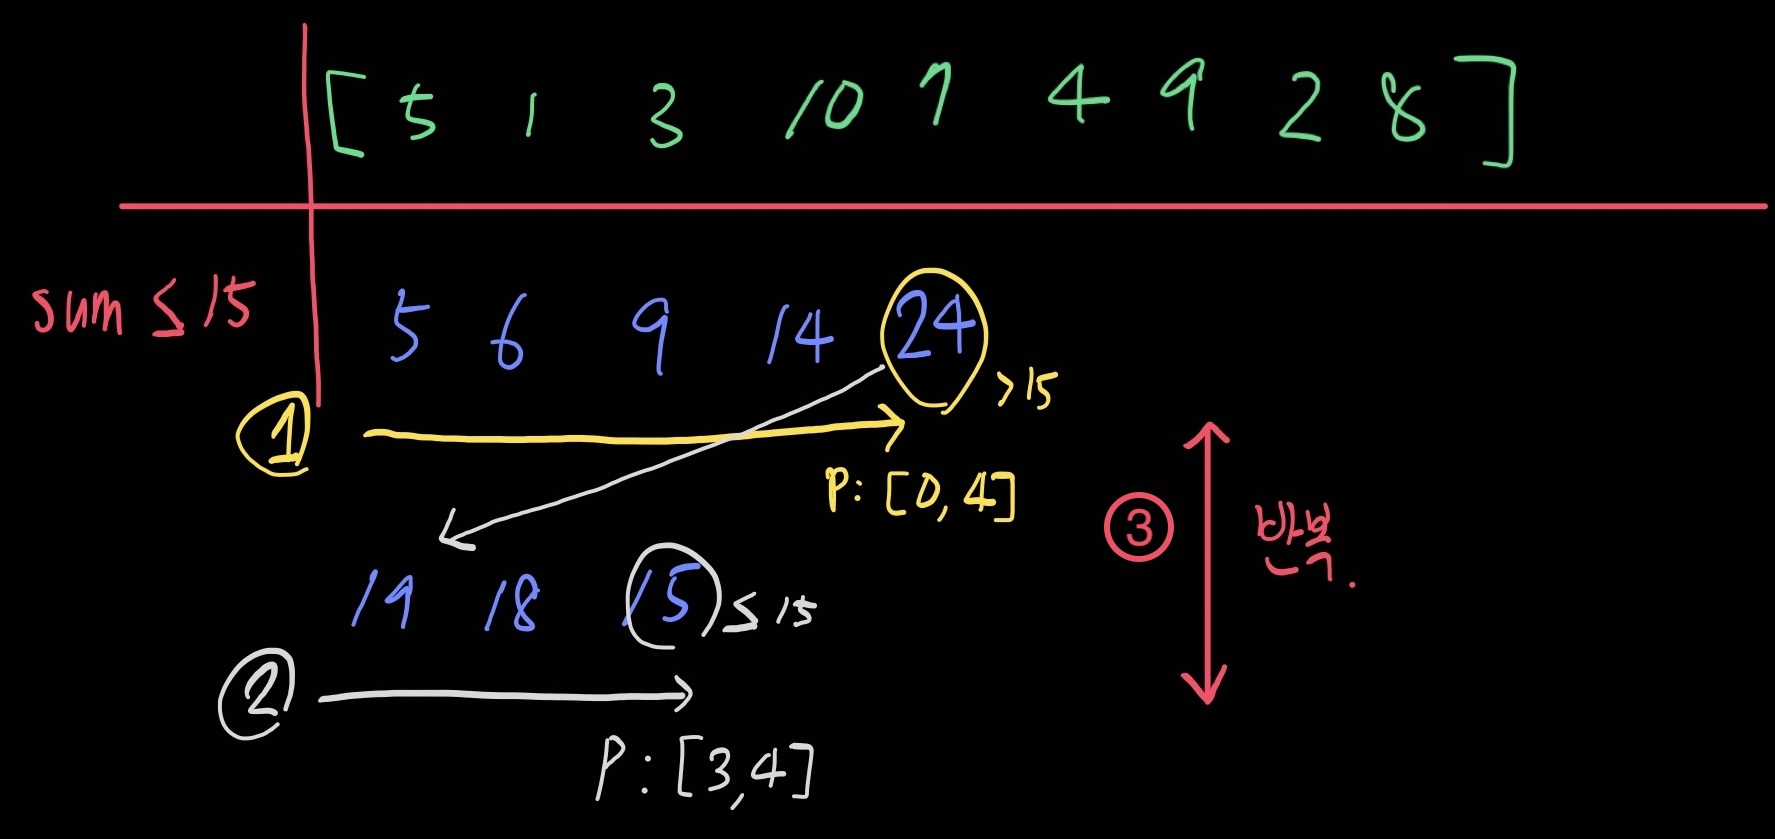 [ 5 1 3 10 7 4 9 2 8 ]
sum ≤ 15
5 6 9 14 24
>15
①
P: [0,4]
③ 반복.
19 18 15 ≤ 15
②
P: [3,4]